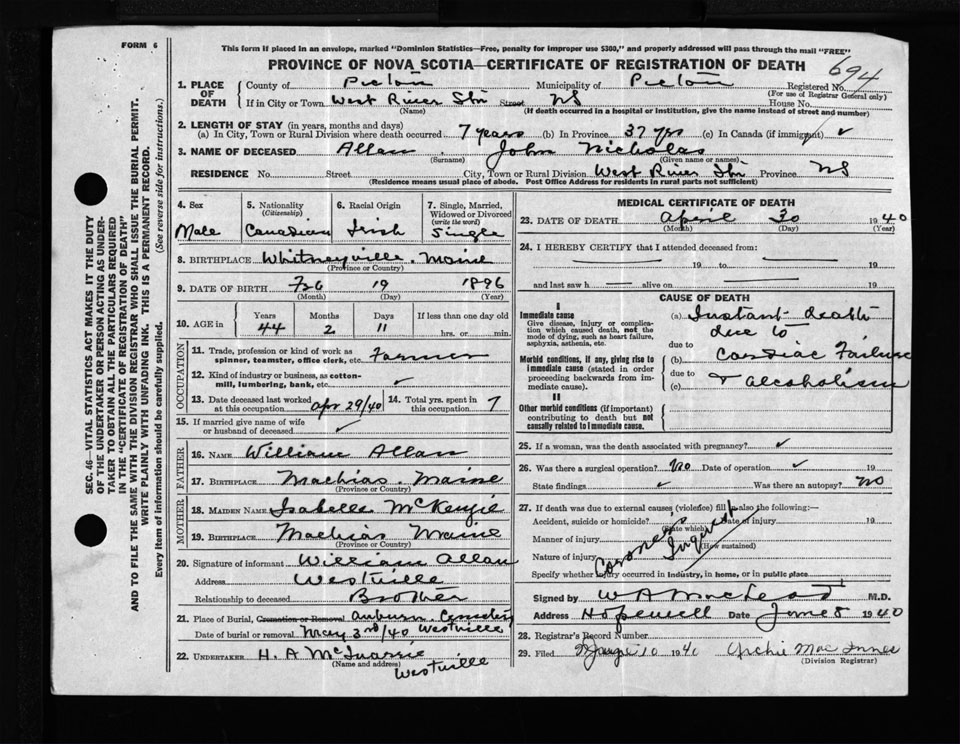 FORM 6
This form if placed in an envelope, marked "Dominion Statistics—Free, penalty for improper use $300," and properly addressed will pass through the mail "FREE"
PROVINCE OF NOVA SCOTIA—CERTIFICATE OF REGISTRATION OF DEATH
694
1. PLACE OF DEATH
County of Pictou Municipality of Pictou Registered No.
(For use of Registrar General only)
If in City or Town West River Stn Street NS House No.
(Name) (If death occurred in a hospital or institution, give the name instead of street and number)
2. LENGTH OF STAY (in years, months and days)
(a) In City, Town or Rural Division where death occurred 7 years (b) In Province 37 yrs (c) In Canada (if immigrant) ✓
3. NAME OF DECEASED Allan John Nicholas
(Surname) (Given name or names)
RESIDENCE No. Street City, Town or Rural Division West River Stn Province NS
(Residence means usual place of abode. Post Office Address for residents in rural parts not sufficient)
4. Sex
Male
5. Nationality
(Citizenship)
Canadian
6. Racial Origin
Irish
7. Single, Married, Widowed or Divorced
(write the word)
Single
8. BIRTHPLACE Whitneyville. Maine
(Province or Country)
9. DATE OF BIRTH Feb 19 1896
(Month) (Day) (Year)
10. AGE in
Years Months Days If less than one day old
44 2 11 hrs. or min.
OCCUPATION
11. Trade, profession or kind of work as spinner, teamster, office clerk, etc. Farmer
12. Kind of industry or business, as cotton-mill, lumbering, bank, etc. ✓
13. Date deceased last worked at this occupation Apr 29/40
14. Total yrs. spent in this occupation 7
15. If married give name of wife or husband of deceased ✓
FATHER
16. NAME William Allan
17. BIRTHPLACE Machias. Maine
(Province or Country)
MOTHER
18. MAIDEN NAME Isabelle McKenzie
19. BIRTHPLACE Machias Maine
(Province or Country)
20. Signature of informant William Allan
Address Westville
Relationship to deceased Brother
21. Place of Burial, Cremation or Removal Auburn Cemetery
Date of burial or removal May 3rd/40 Westville
22. UNDERTAKER H. A McQuarrie
(Name and address)
Westville
MEDICAL CERTIFICATE OF DEATH
23. DATE OF DEATH April 30 1940
(Month) (Day) (Year)
24. I HEREBY CERTIFY that I attended deceased from:
19 to 19
and last saw h alive on 19
CAUSE OF DEATH
I
Immediate cause
Give disease, injury or complication which caused death, not the mode of dying, such as heart failure, asphyxia, asthenia, etc.
(a) Instant death
due to
due to
Morbid conditions, if any, giving rise to immediate cause (stated in order proceeding backwards from immediate cause).
(b) Cardiac Failure
due to
(c) + alcoholism
II
Other morbid conditions (if important) contributing to death but not causally related to immediate cause.
25. If a woman, was the death associated with pregnancy? ✓
26. Was there a surgical operation? No Date of operation ✓ 19
State findings ✓ Was there an autopsy? No
27. If death was due to external causes (violence) fill in also the following:—
Accident, suicide or homicide? Date of injury 19
(State which)
Manner of injury
(How sustained)
Nature of injury
Coroner's Inquest
Specify whether injury occurred in industry, in home, or in public place
Signed by W A MacLeod M.D.
Address Hopewell Date June 8 1940
28. Registrar's Record Number
29. Filed June 10 1940 Archie MacInnes
(Division Registrar)
SEC. 46—VITAL STATISTICS ACT MAKES IT THE DUTY
OF THE UNDERTAKER OR PERSON ACTING AS UNDERTAKER TO OBTAIN ALL THE PARTICULARS REQUIRED
IN THE "CERTIFICATE OF REGISTRATION OF DEATH"
AND TO FILE THE SAME WITH THE DIVISION REGISTRAR WHO SHALL ISSUE THE BURIAL PERMIT.
WRITE PLAINLY WITH UNFADING INK. THIS IS A PERMANENT RECORD.
Every item of information should be carefully supplied. (See reverse side for instructions.)